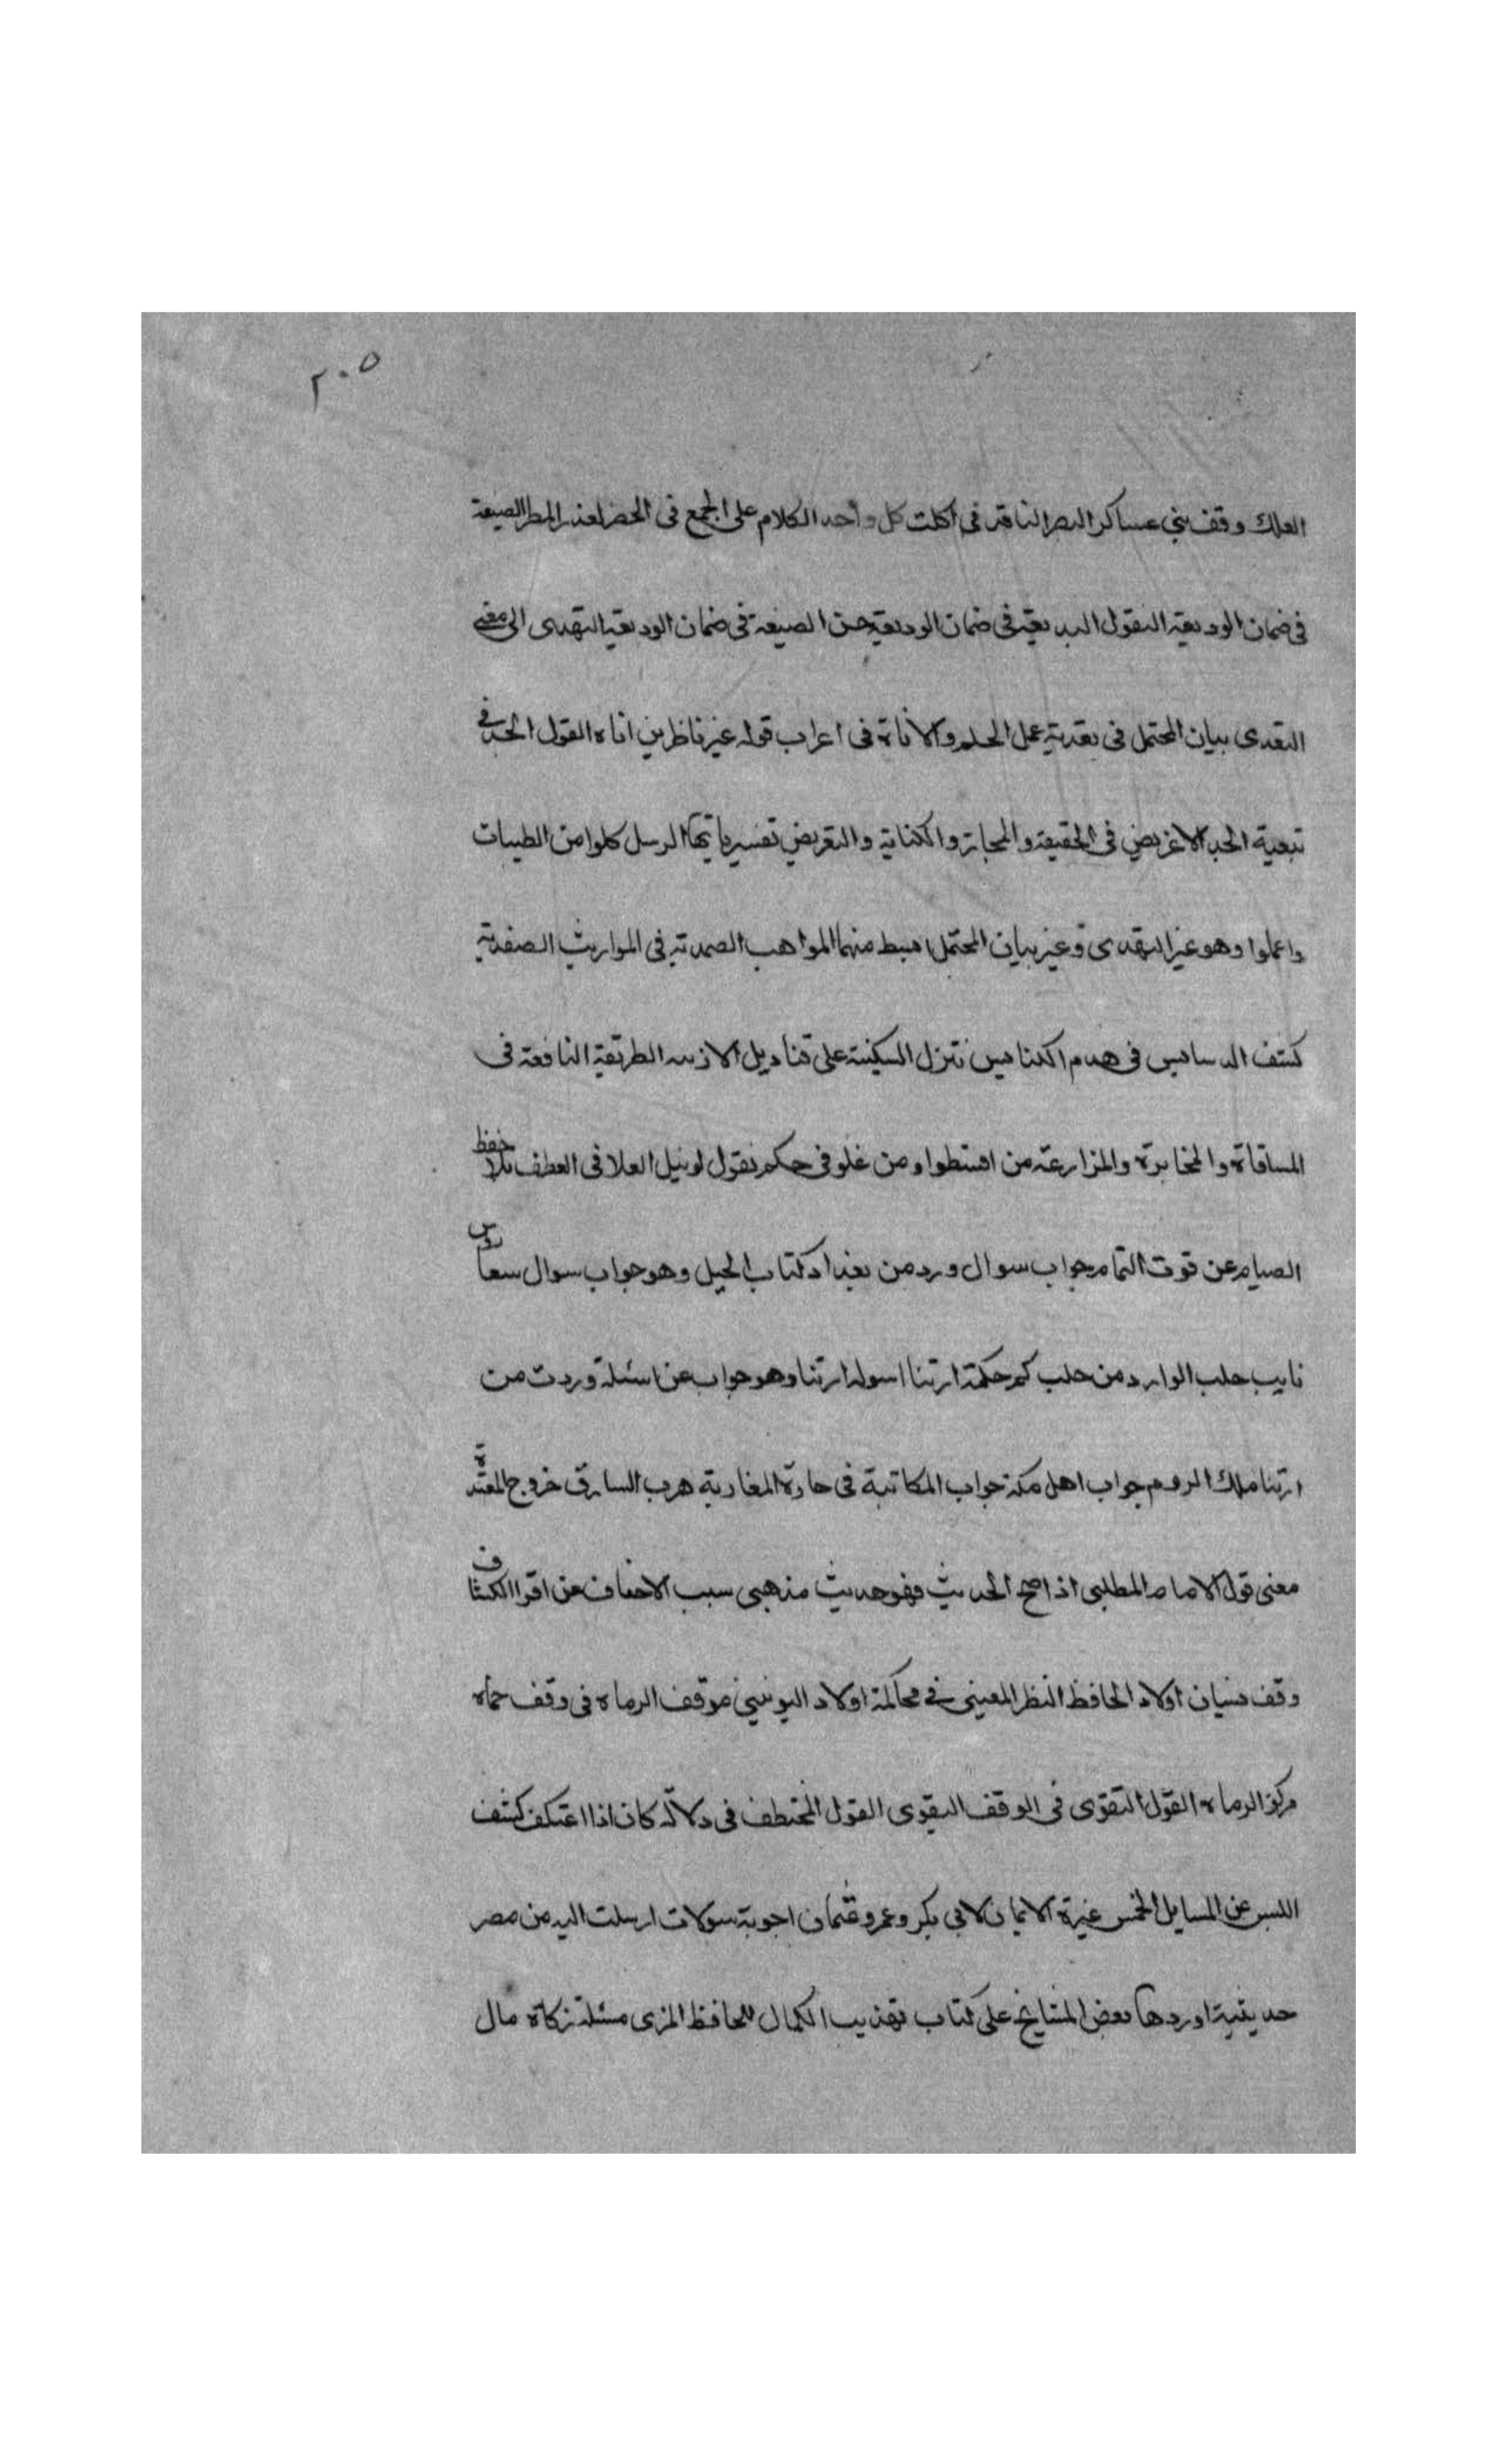 ٢٠٥
الفلك وقف بني عساكر البصر الناقد في اكلت كل واحد الكلام على الجمع في الحضر لعذر المطر الصيغة
في ضمان الوديعة النقول البديعة في ضمان الوديعة حسن الصيغة في ضمان الوديعة التهدى الى معنى
التعدى بيان المحتمل في تعدية عمل الحلم والاناة في اعراب قوله غير ناظرين اناه القول الجد في
تبعية الجد الاغريض في الحقيقة والمجاز والكناية والتعريض تفسير ياتها الرسل كلوا من الطيبات
واعملوا وهو غير التهدى وغير بيان المحتمل ابسط منهما المواهب الصمدية في المواريث الصفدية
كشف الدسايس في هدم الكنايس تنزل السكينة على قناديل الازينه الطريقة النافعة في
المساقاة والمخابرة والمزارعة من اقسطوا ومن غلو في حكم نقول لو نيل العلا في العطف بلا حفظ
الصيام عن فوت التمام جواب سوال ورد من بغداد كتاب الحيل وهو جواب سوال
نايب حلب الوارد من حلب كم حكمة ارتنا اسوله ارتنا وهو جواب عن اسئلة وردت من
ارتنا ملك الروم جواب اهل مكة جواب المكاتبة في حارة المغاربة هرب السارق خروج المعتدة
معنى قول الامام المطلبي اذا صح الحديث فهو حديث مذهبي سبب الاحفاف عن اقرا الكشاف
وقف بيسان اولاد الحافظ النظر المعيني في محاكمة اولاد اليونيني موقف الرماه في وقف حماه
مركز الرماه القول التقوى في الوقف التقوى القول المختطف في دلالة كان اذا اعتكف كشف
اللبس عن المسايل الخمس غيرة الايمان لابي بكر وعمر وعثمان اجوبة سولات ارسلت اليه من مصر
حديثية اوردها بعض المشايخ على كتاب تهذيب الكمال للحافظ المزى مسئلة زكاة مال